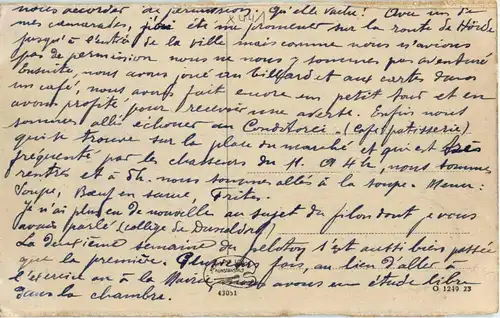 nous accorder de permission. qu'elle vache! Avec un de
mes camarades, j'ai été me promener sur la route de Hörde
jusqu'à l'entrée de la ville mais comme nous n'avions
pas de permission nous ne nous y sommes pas aventuré
Ensuite, nous avons joué au billard et aux cartes dans
un café, nous avons fait encore un petit tour et en
avons profité pour recevoir une averse. Enfin nous
sommes allé échouer au Conditorei (Café patisserie)
qui se trouve sur la place du marché et qui est
fréquenté par les chasseurs du 11. A 4h, nous sommes
rentrés et à 5h. nous sommes allés à la soupe. Menu:
Soupe, Bœuf en sauce, Frites.
Je n'ai plus eu de nouvelle au sujet du filon dont je vous
avais parlé (collège de Dusseldorf)
La deuxième semaine du peloton s'est aussi bien passée
que la première. Plusieurs fois, au lieu d'aller à
l'exercice ou à la nous avons eu étude libre
dans la chambre.
43051
O. 1249 23